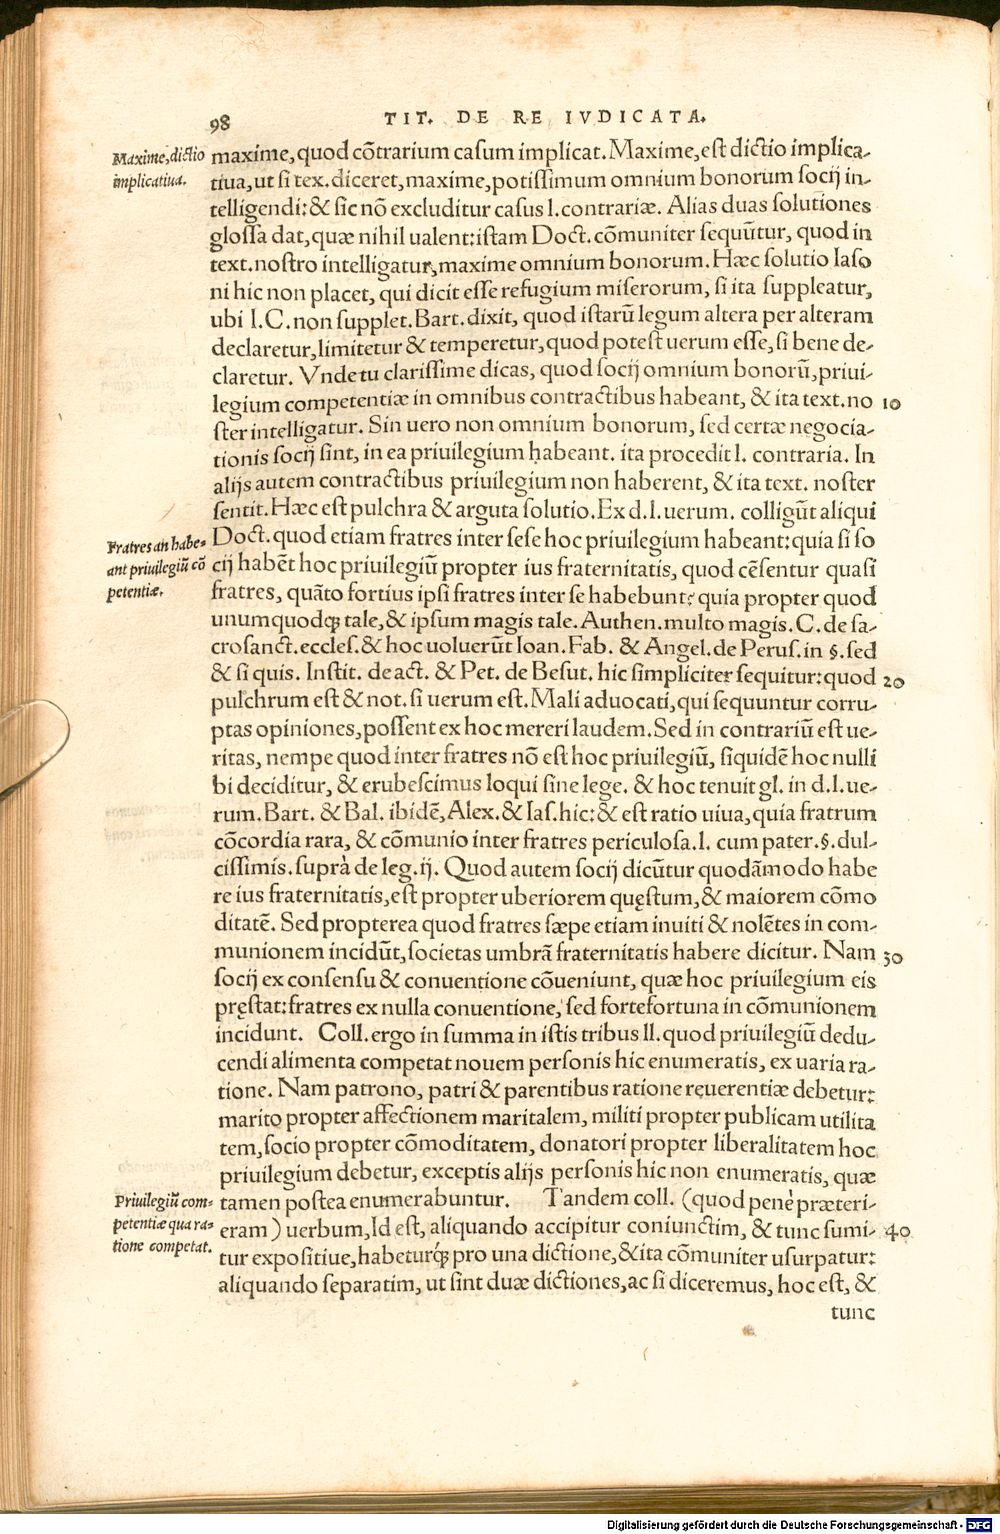 98
TIT. DE RE IVDICATA.
Maxime, dictio
implicatiua.
maxime, quod cõtrarium casum implicat. Maxime, est dictio implica-
tiua, ut si tex. diceret, maxime, potissimum omnium bonorum socij in-
telligendi: & sic nõ excluditur casus l. contrariæ. Alias duas solutiones
glossa dat, quæ nihil ualent: istam Doct. cõmuniter sequũtur, quod in
text. nostro intelligatur, maxime omnium bonorum. Hæc solutio Iaso
ni hic non placet, qui dicit esse refugium miserorum, si ita suppleatur,
ubi I. C. non supplet. Bart. dixit, quod istarũ legum altera per alteram
declaretur, limitetur & temperetur, quod potest uerum esse, si bene de-
claretur. Vnde tu clarissime dicas, quod socij omnium bonorũ, priui-
legium competentiæ in omnibus contractibus habeant, & ita text. no 10
ster intelligatur. Sin uero non omnium bonorum, sed certæ negocia-
tionis socij sint, in ea priuilegium habeant. ita procedit l. contraria. In
alijs autem contractibus priuilegium non haberent, & ita text. noster
sentit. Hæc est pulchra & arguta solutio. Ex d. l. uerum. colligũt aliqui
Fratres an habe-
ant priuilegiũ cõ
petentiæ.
Doct. quod etiam fratres inter sese hoc priuilegium habeant: quia si so
cij habẽt hoc priuilegiũ propter ius fraternitatis, quod cẽsentur quasi
fratres, quãto fortius ipsi fratres inter se habebunt: quia propter quod
unumquodqꝫ tale, & ipsum magis tale. Authen. multo magis. C. de sa-
crosanct. eccles. & hoc uoluerũt Ioan. Fab. & Angel. de Perus. in §. sed
& si quis. Instit. de act. & Pet. de Besut. hic simpliciter sequitur: quod 20
pulchrum est & not. si uerum est. Mali aduocati, qui sequuntur corru-
ptas opiniones, possent ex hoc mereri laudem. Sed in contrariũ est ue-
ritas, nempe quod inter fratres nõ est hoc priuilegiũ, siquidẽ hoc nulli
bi deciditur, & erubescimus loqui sine lege. & hoc tenuit gl. in d. l. ue-
rum. Bart. & Bal. ibidẽ, Alex. & Ias. hic: & est ratio uiua, quia fratrum
cõcordia rara, & cõmunio inter fratres periculosa. l. cum pater. §. dul-
cissimis. suprà de leg. ij. Quod autem socij dicũtur quodãmodo habe
re ius fraternitatis, est propter uberiorem quęstum, & maiorem cõmo
ditatẽ. Sed propterea quod fratres sæpe etiam inuiti & nolẽtes in com-
munionem incidũt, societas umbrã fraternitatis habere dicitur. Nam 30
socij ex consensu & conuentione cõueniunt, quæ hoc priuilegium eis
pręstat: fratres ex nulla conuentione, sed fortefortuna in cõmunionem
incidunt. Coll. ergo in summa in istis tribus ll. quod priuilegiũ dedu-
cendi alimenta competat nouem personis hic enumeratis, ex uaria ra-
tione. Nam patrono, patri & parentibus ratione reuerentiæ debetur:
marito propter affectionem maritalem, militi propter publicam utilita
tem, socio propter cõmoditatem, donatori propter liberalitatem hoc
priuilegium debetur, exceptis alijs personis hic non enumeratis, quæ
Priuilegiũ com-
petentiæ qua ra-
tione competat.
tamen postea enumerabuntur. Tandem coll. (quod penè præteri-
eram) uerbum, Id est, aliquando accipitur coniunctim, & tunc sumi- 40
tur expositiue, habeturq́ꝫ pro una dictione, & ita cõmuniter usurpatur:
aliquando separatim, ut sint duæ dictiones, ac si diceremus, hoc est, &
tunc
Digitalisierung gefördert durch die Deutsche Forschungsgemeinschaft - DFG